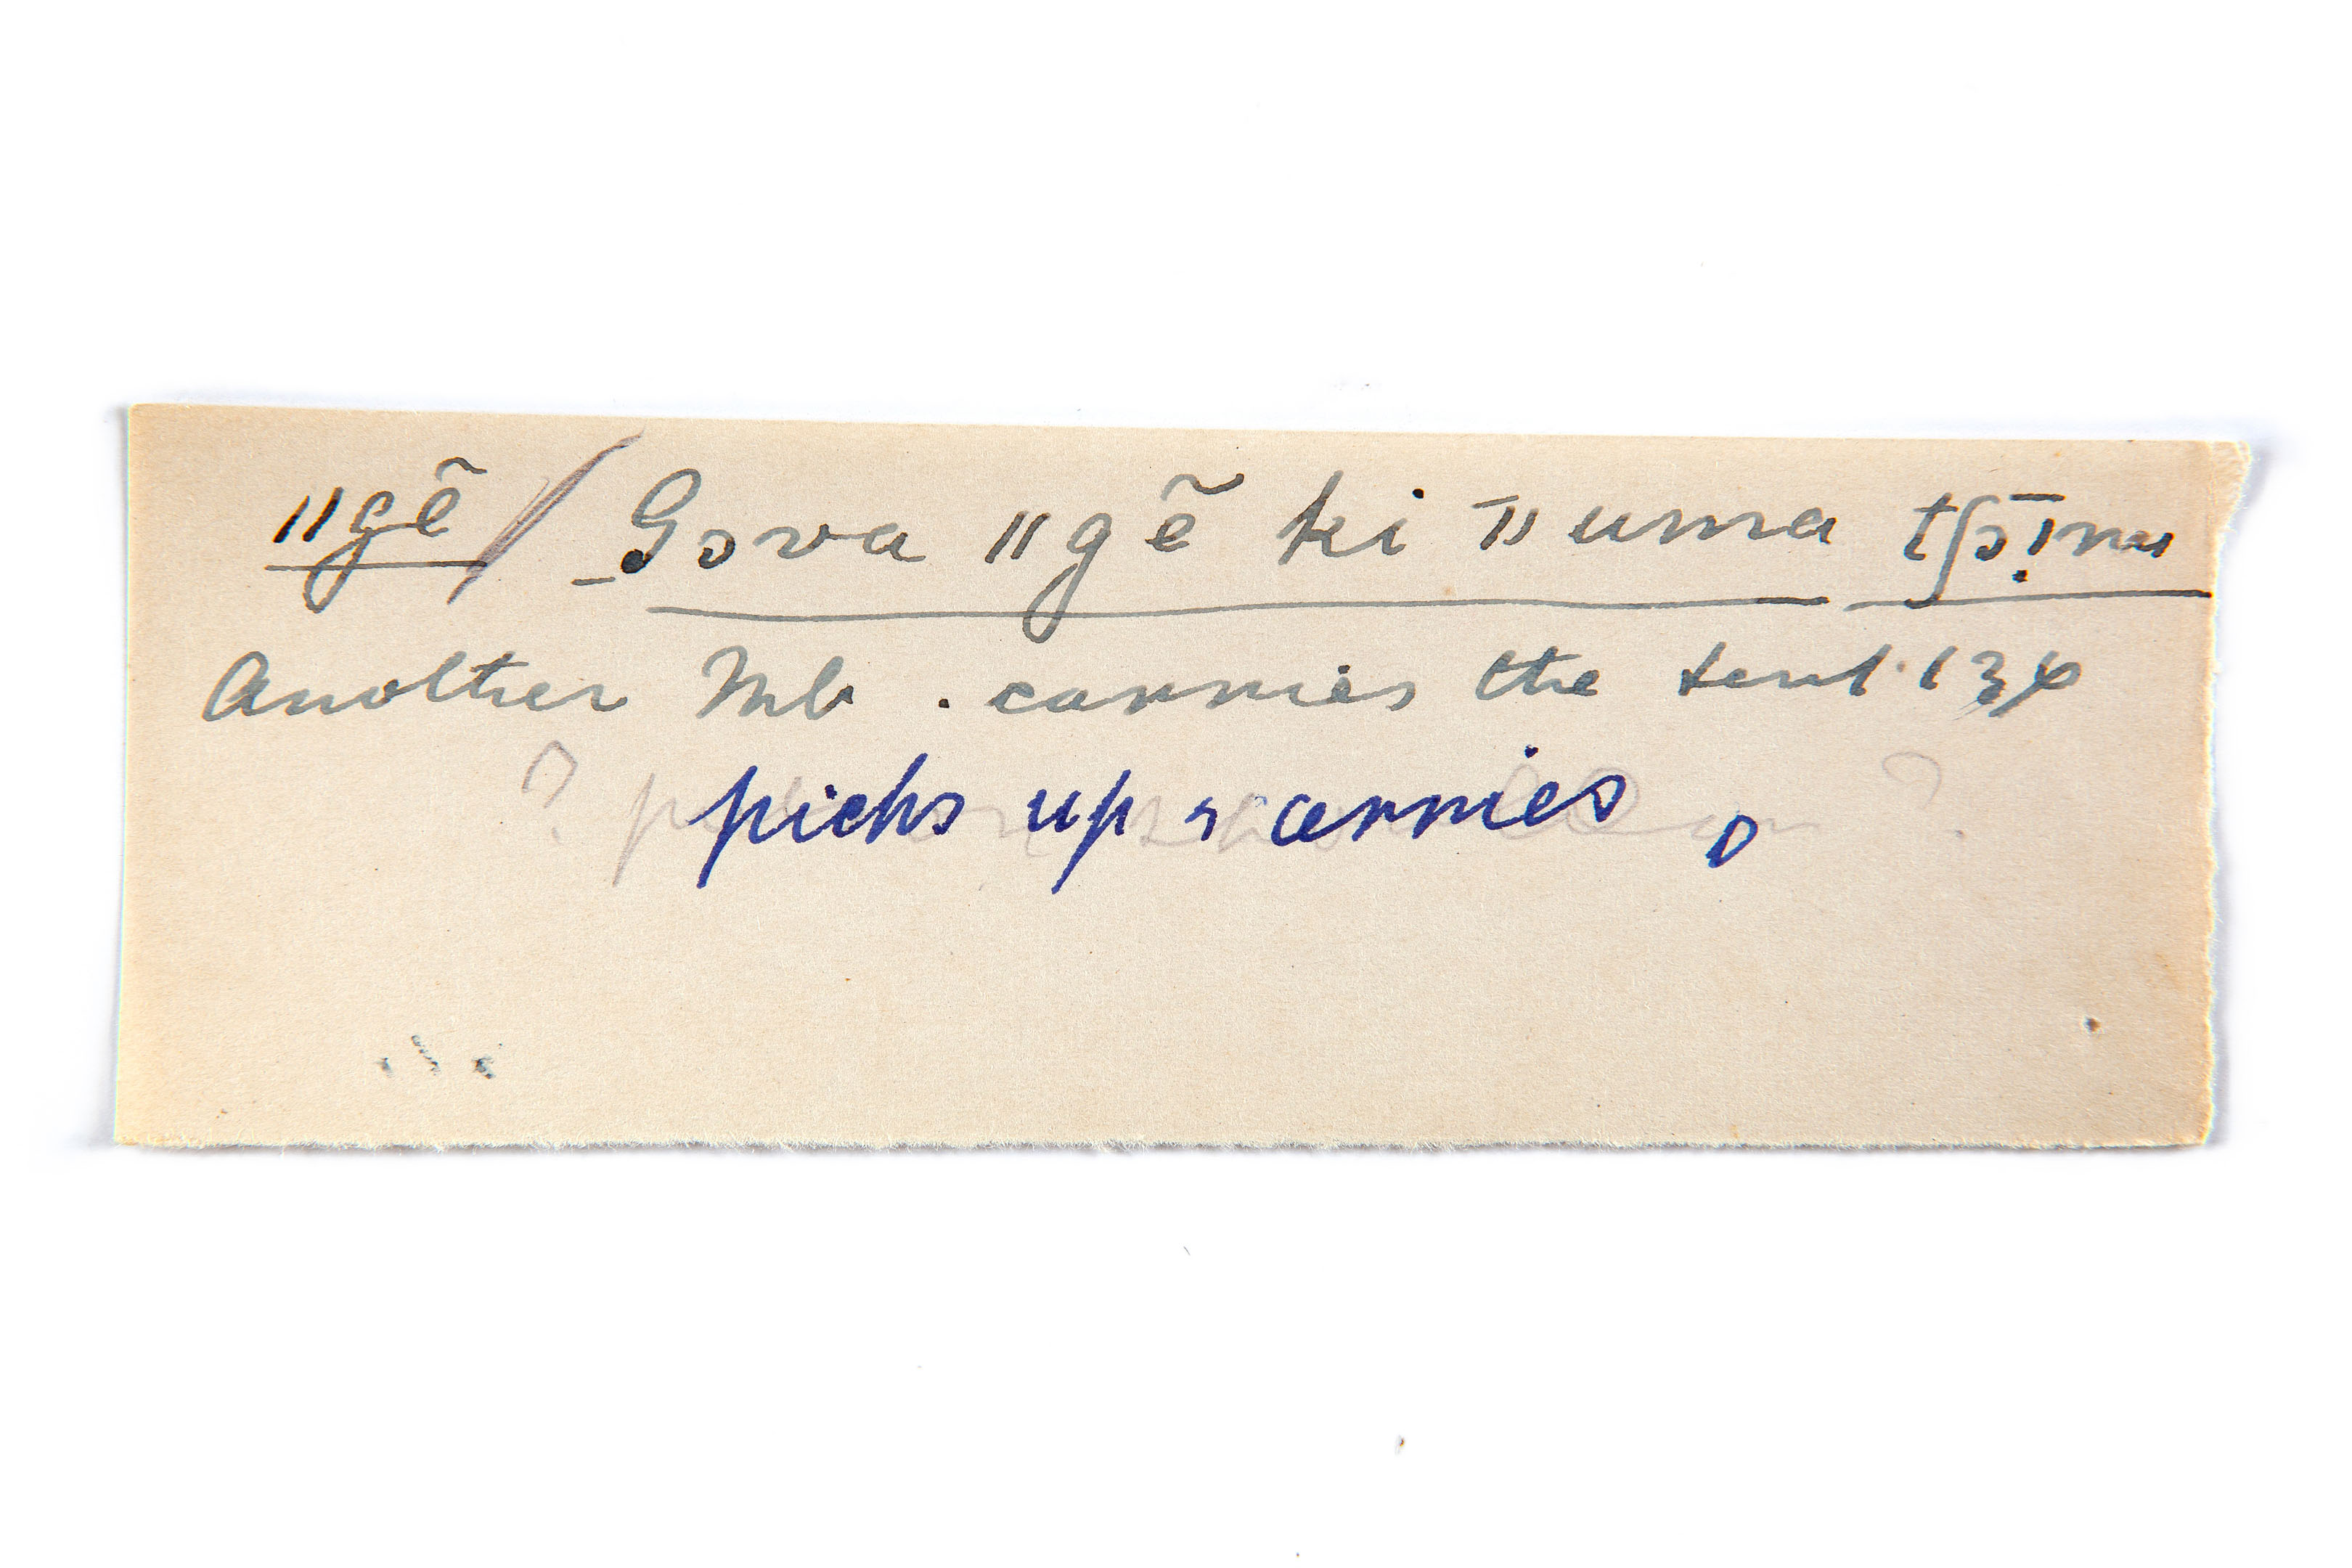 ǁgẽ / Gova ǁgẽ ki ǁuma
Another Mb. carries the tent 134
? picks up & carries ?